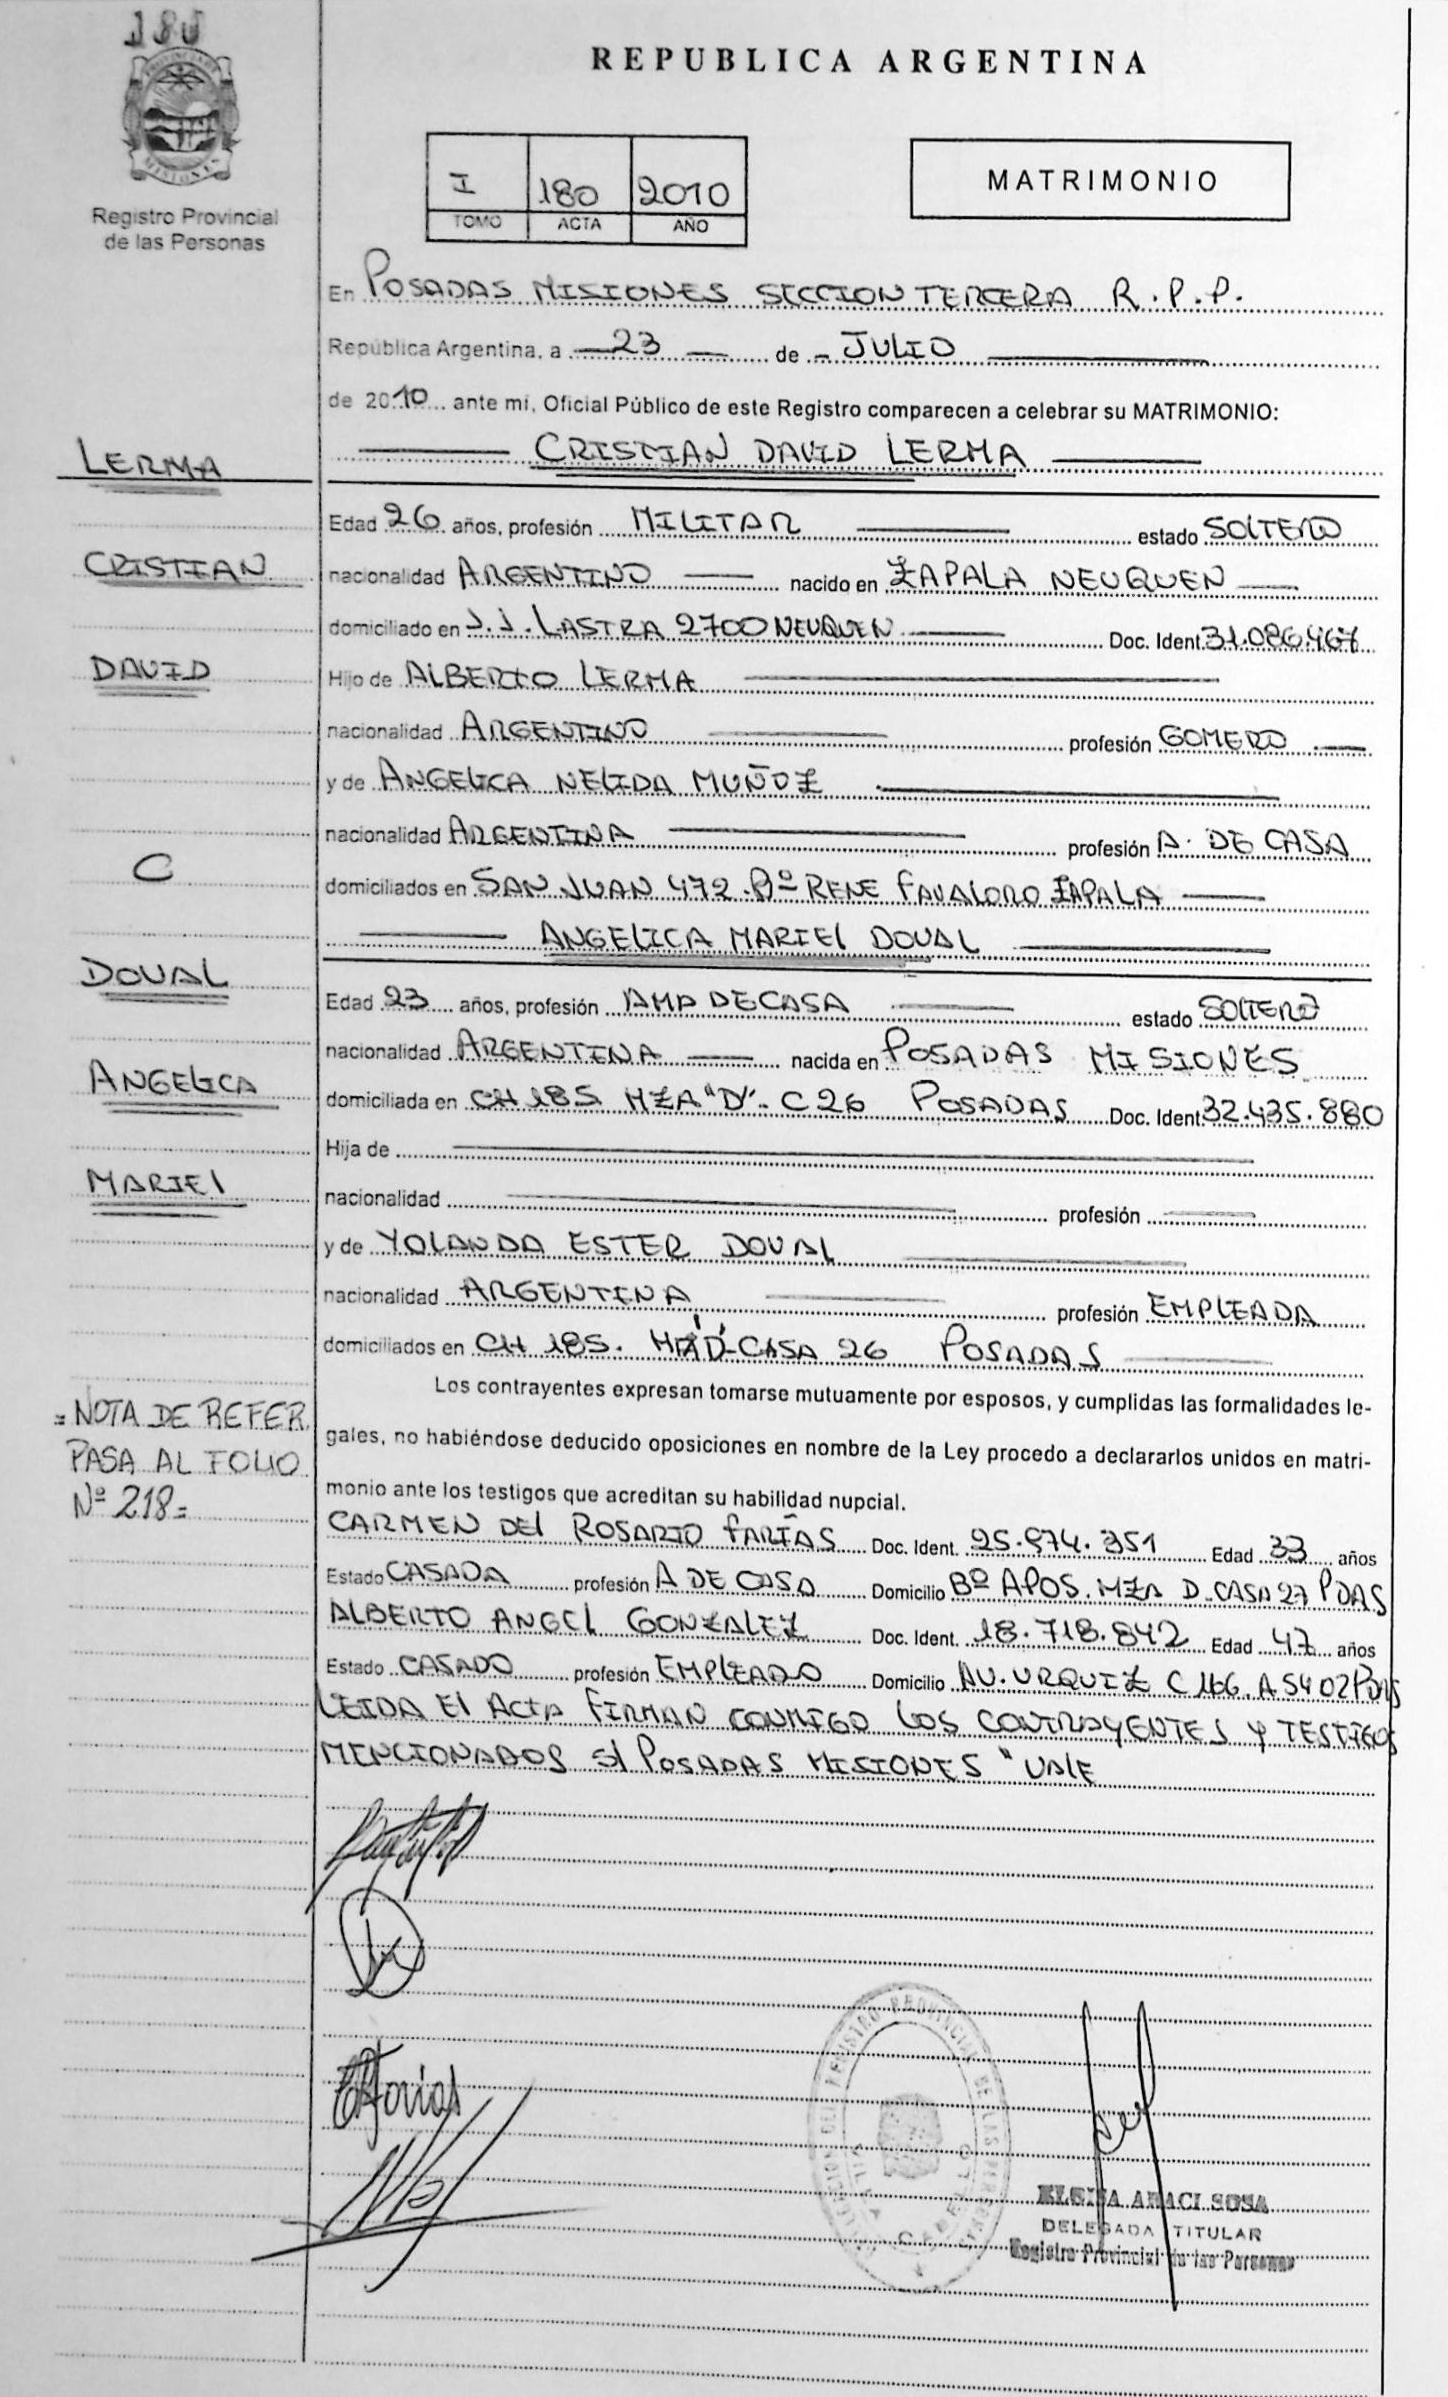 180
REPUBLICA ARGENTINA
MISIONES
Registro Provincial
de las Personas
I 180 2010
TOMO ACTA AÑO
MATRIMONIO
En POSADAS MISIONES SECCION TERCERA R.P.P.
República Argentina, a 23 de JULIO
de 2010 ante mi, Oficial Público de este Registro comparecen a celebrar su MATRIMONIO:
CRISTIAN DAVID LERMA
LERMA
Edad 26 años, profesión MILITAR estado SOLTERO
CRISTIAN
nacionalidad ARGENTINO nacido en ZAPALA NEUQUEN
domiciliado en J.J. LASTRA 2700 NEUQUEN Doc. Ident. 31.086.467
DAVID
Hijo de ALBERTO LERMA
nacionalidad ARGENTINO profesión GOMERO
y de ANGELICA NELIDA MUÑOZ
nacionalidad ARGENTINA profesión A. DE CASA
C
domiciliados en SAN JUAN 472 Bº RENE FAVALORO ZAPALA
ANGELICA MARIEL DOVAL
DOVAL
Edad 23 años, profesión AMA DE CASA estado SOLTERA
nacionalidad ARGENTINA nacida en POSADAS MISIONES
ANGELICA
domiciliada en CH 185 MZA "D". C 26 POSADAS Doc. Ident. 32.435.880
Hija de
MARIEL
nacionalidad profesión
y de YOLANDA ESTER DOVAL
nacionalidad ARGENTINA profesión EMPLEADA
domiciliados en CH 185. MZA "D" CASA 26 POSADAS
Los contrayentes expresan tomarse mutuamente por esposos, y cumplidas las formalidades le-
gales, no habiéndose deducido oposiciones en nombre de la Ley procedo a declararlos unidos en matri-
monio ante los testigos que acreditan su habilidad nupcial.
= NOTA DE REFER.
PASA AL FOLIO
Nº 218=
CARMEN DEL ROSARIO FARIAS Doc. Ident. 25.974.351 Edad 33 años
Estado CASADA profesión A DE CASA Domicilio Bº APOS. MZA D. CASA 27 PDAS
ALBERTO ANGEL GONZALEZ Doc. Ident. 18.718.842 Edad 47 años
Estado CASADO profesión EMPLEADO Domicilio AV. URQUIZ C 166. A 5402 PDAS
LEIDA El ACTA FIRMAN CONMIGO LOS CONTRAYENTES Y TESTIGOS
MENCIONADOS S/ POSADAS MISIONES "VALE
REGISTRO PROVINCIAL DE LAS PERSONAS
ARACI SOSA
DELEGADA TITULAR
Registro Provincial de las Personas